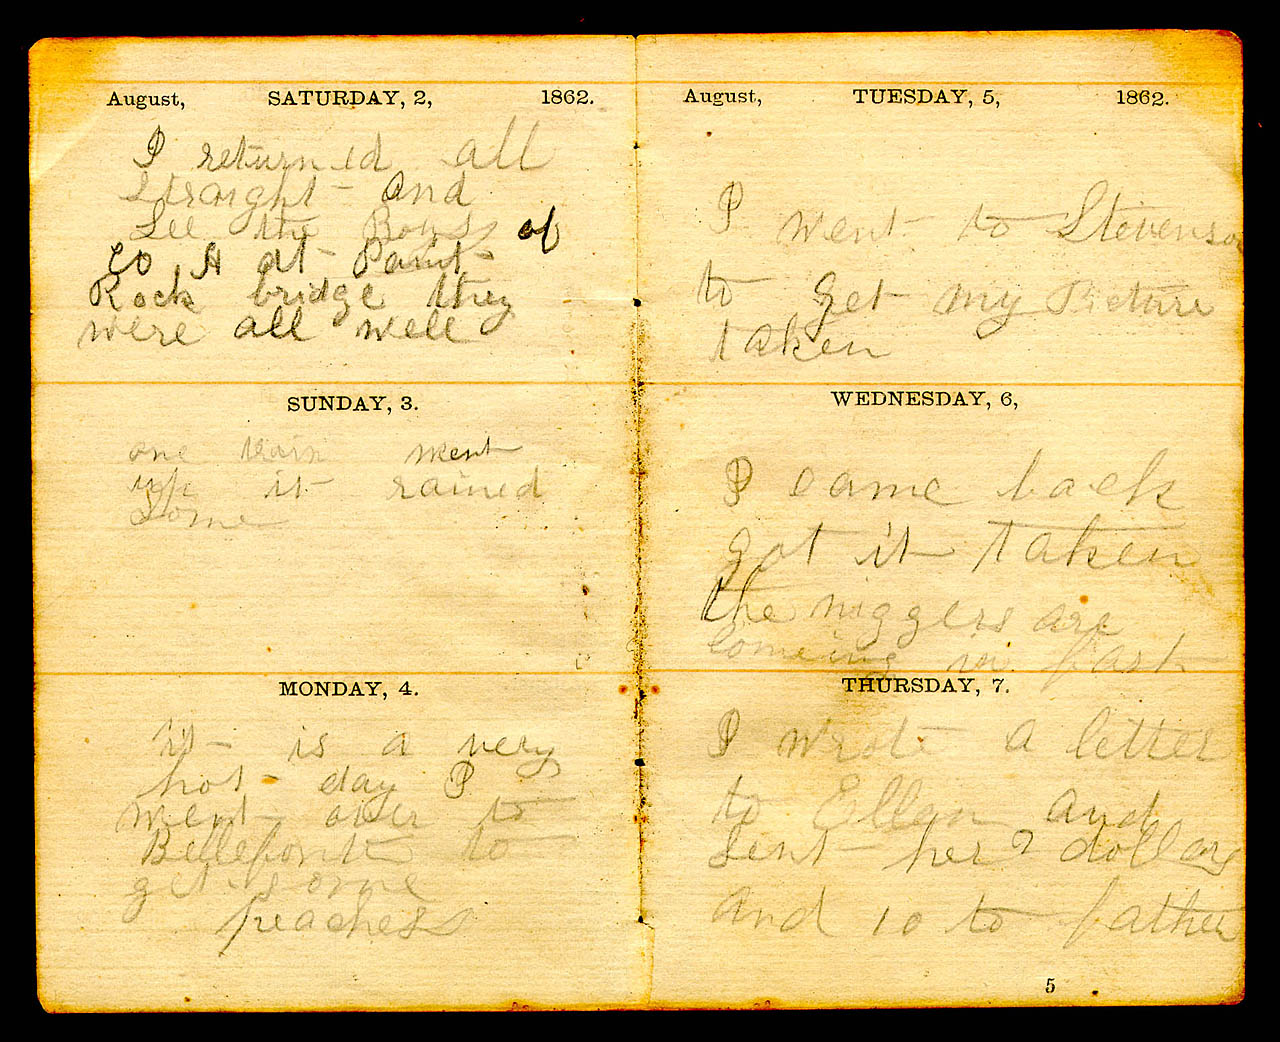 August, SATURDAY, 2, 1862.
I returned all
straight and
See the Boys of
Co H at Paint
Rock bridge they
were all well
SUNDAY, 3.
one train went
up it rained
Some
MONDAY, 4.
it is a very
hot day I
went over to
Bellefonte to
get some
peaches
August, TUESDAY, 5, 1862.
I went to Stevenson
to get my Picture
taken
WEDNESDAY, 6,
I came back
got it taken
the niggers are
Comeing in fast
THURSDAY, 7.
I wrote a letter
to Ellen and
Sent her 2 dollars
and 10 to father
5